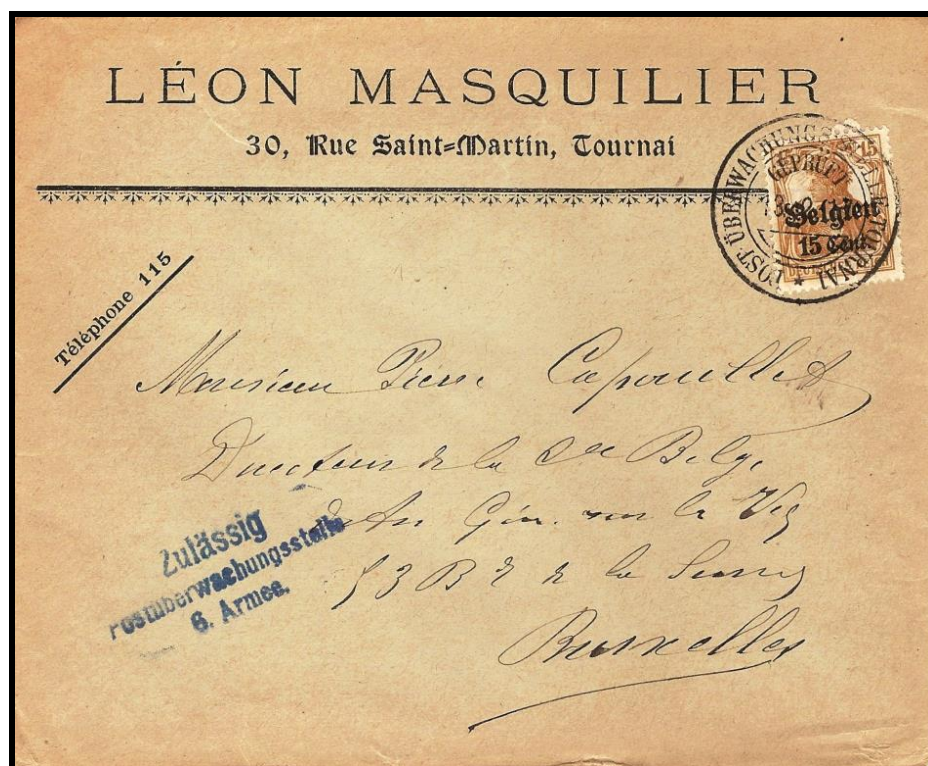 LÉON MASQUILIER
30, Rue Saint-Martin, Tournai
POST-ÜBERWACHUNGS TOURNAI
GEPRÜFT
15
Belgien
15 Cent
Téléphone 115
Monsieur Pierre Capouillet
Directeur de la Cie Belge
d'Ass Gén. sur la Vie
53 Bd de la Senne
Bruxelles
Zulässig
Postüberwachungsstelle
6. Armee.